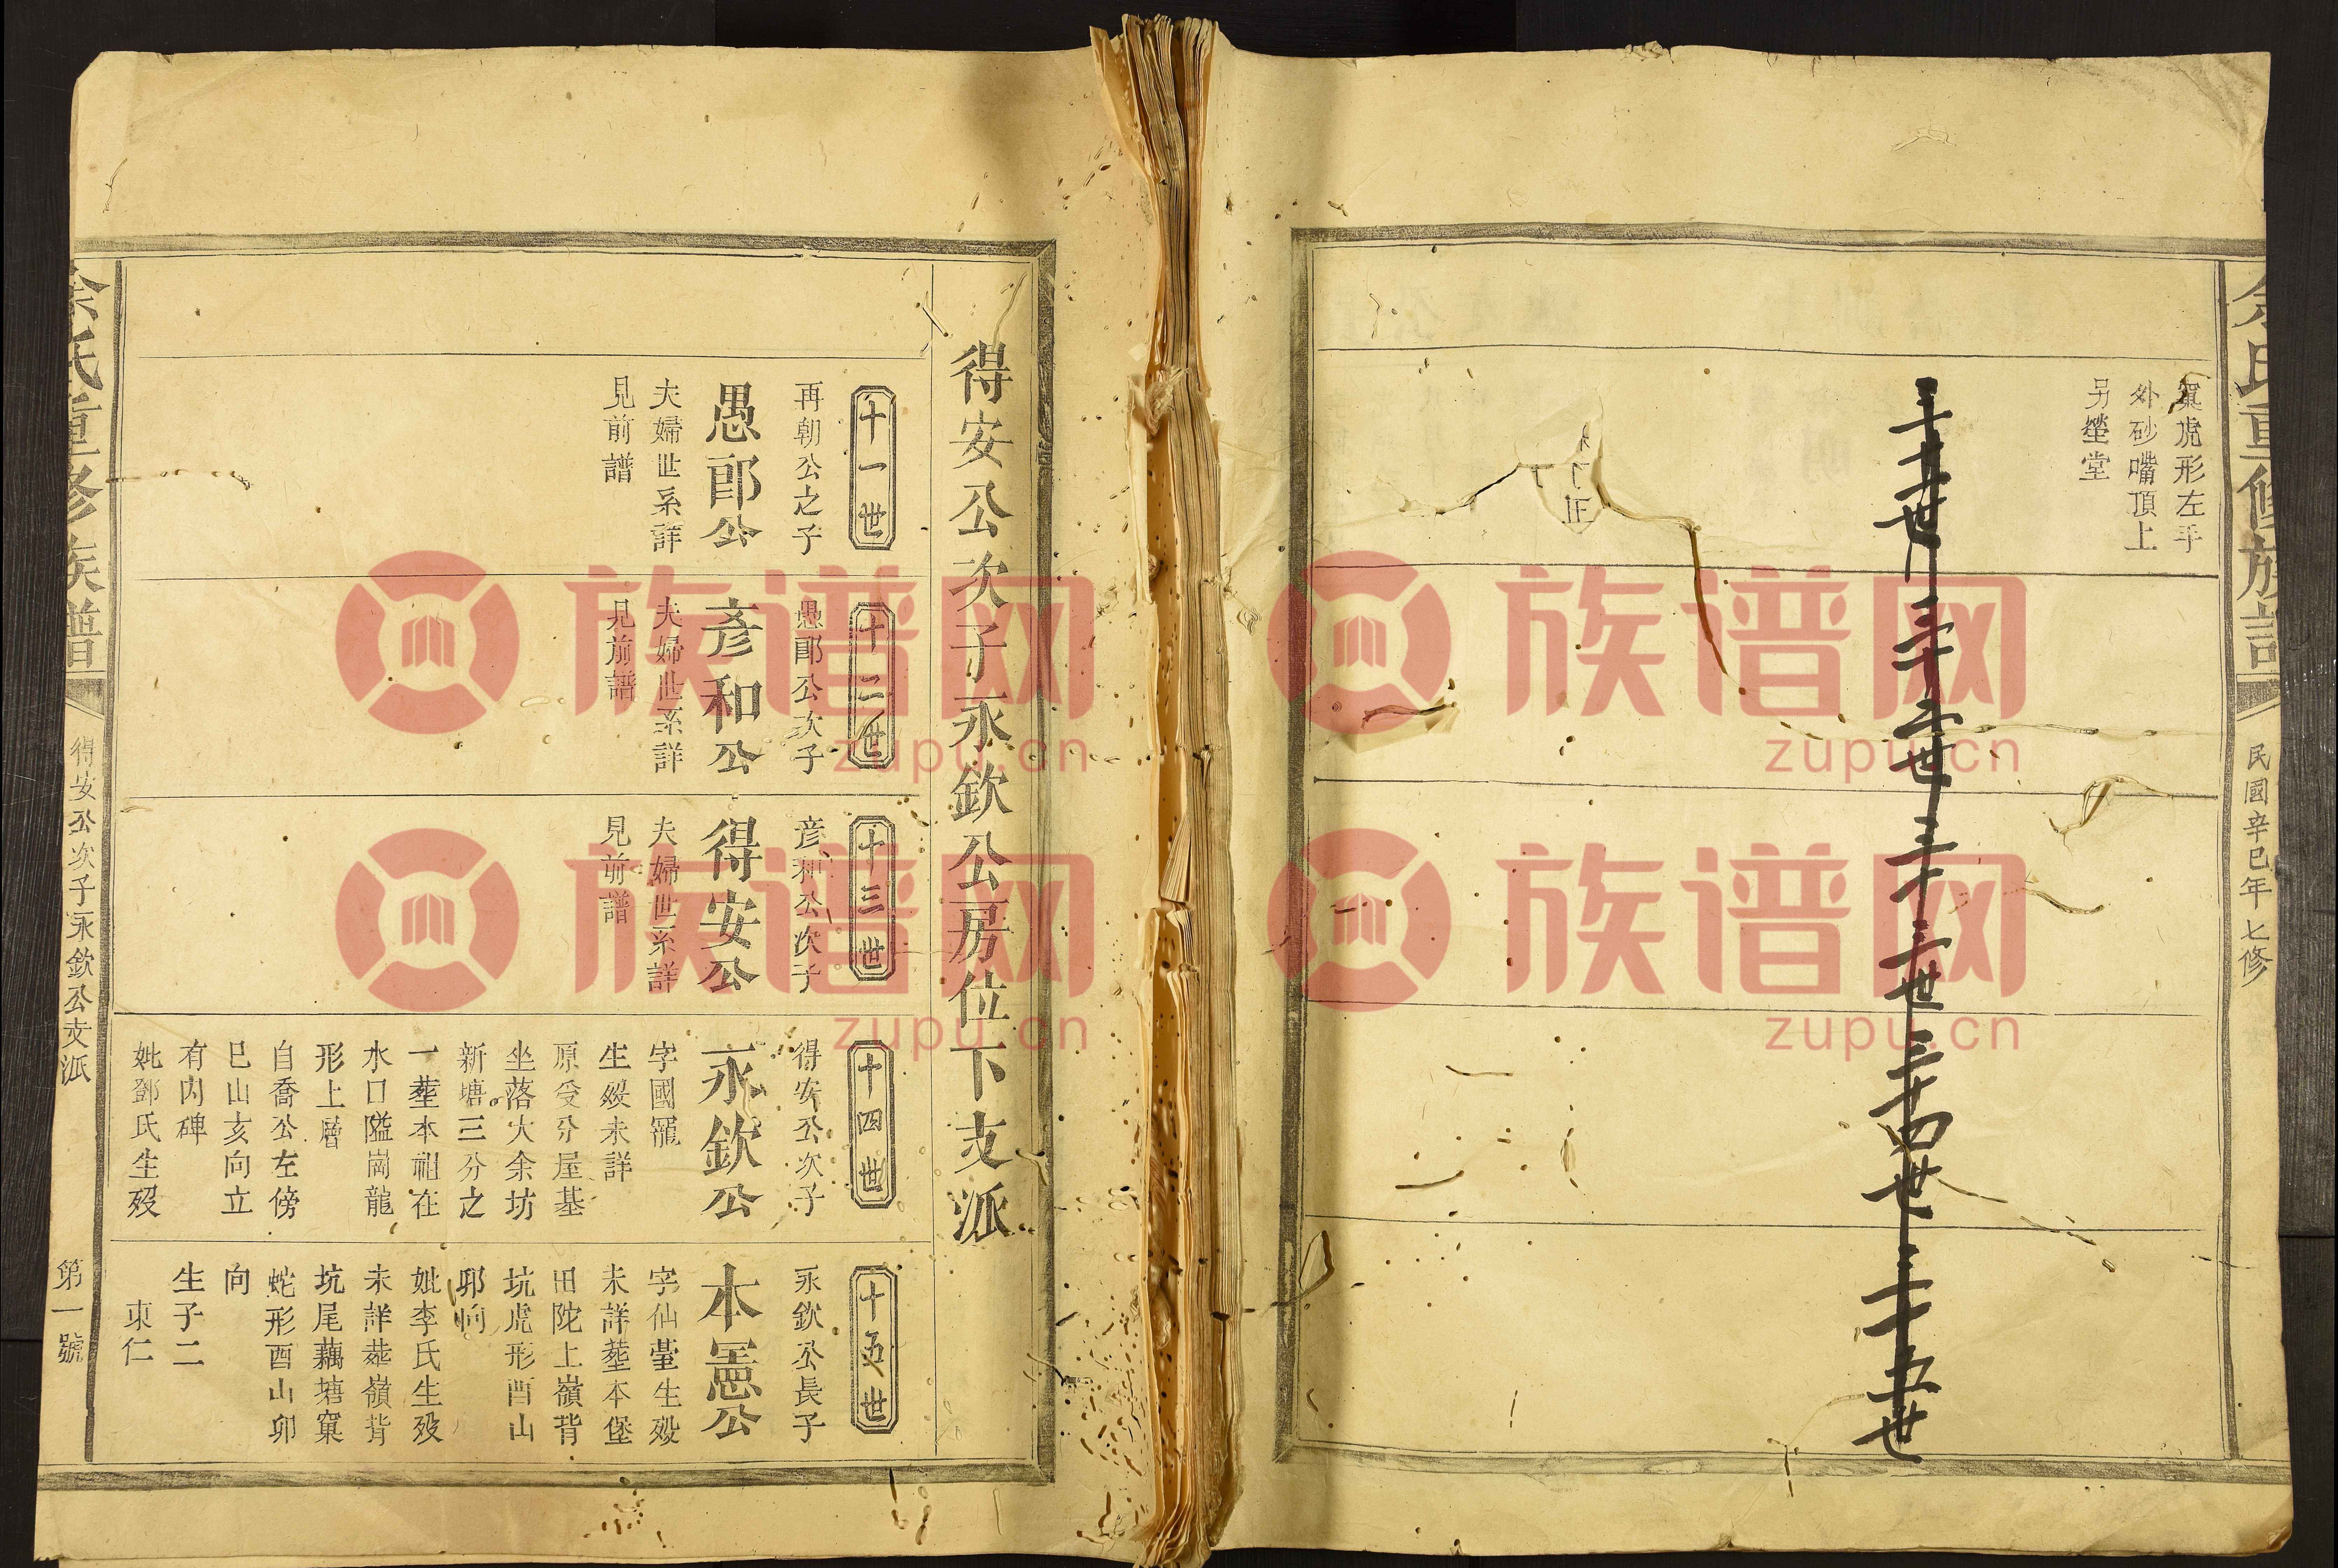 民國辛巳年七修
窠虎形左手
外砂嘴頂上
另塋堂
三十一世
三十二世
三十三世
三十四世
三十五世
得安公次子永欽公房位下支派
十一世
再朝公之子
愚郎公
夫婦世系詳
見前譜
十二世
愚郎公次子
彥和公
夫婦世系詳
見前譜
十三世
彥和公次子
得安公
夫婦世系詳
見前譜
十四世
得安公次子
永欽公
字國寵
生殁未詳
原受分屋基
坐落大余坊
新塘三分之
一塟本祖在
水口隘崗龍
形上層
自喬公左傍
巳山亥向立
有內碑
妣鄧氏生殁
十五世
永欽公長子
本憲公
字仙臺生殁
未詳塟本堡
田陀上嶺背
坑虎形酉山
卯向
妣李氏生殁
未詳塟嶺背
坑尾藕塘窠
蛇形酉山卯
向
生子二
東仁
余氏重修族譜
得安公次子永欽公支派
第一號
族谱网
zupu.cn
族谱网
zupu.cn
族谱网
zupu.cn
族谱网
zupu.cn